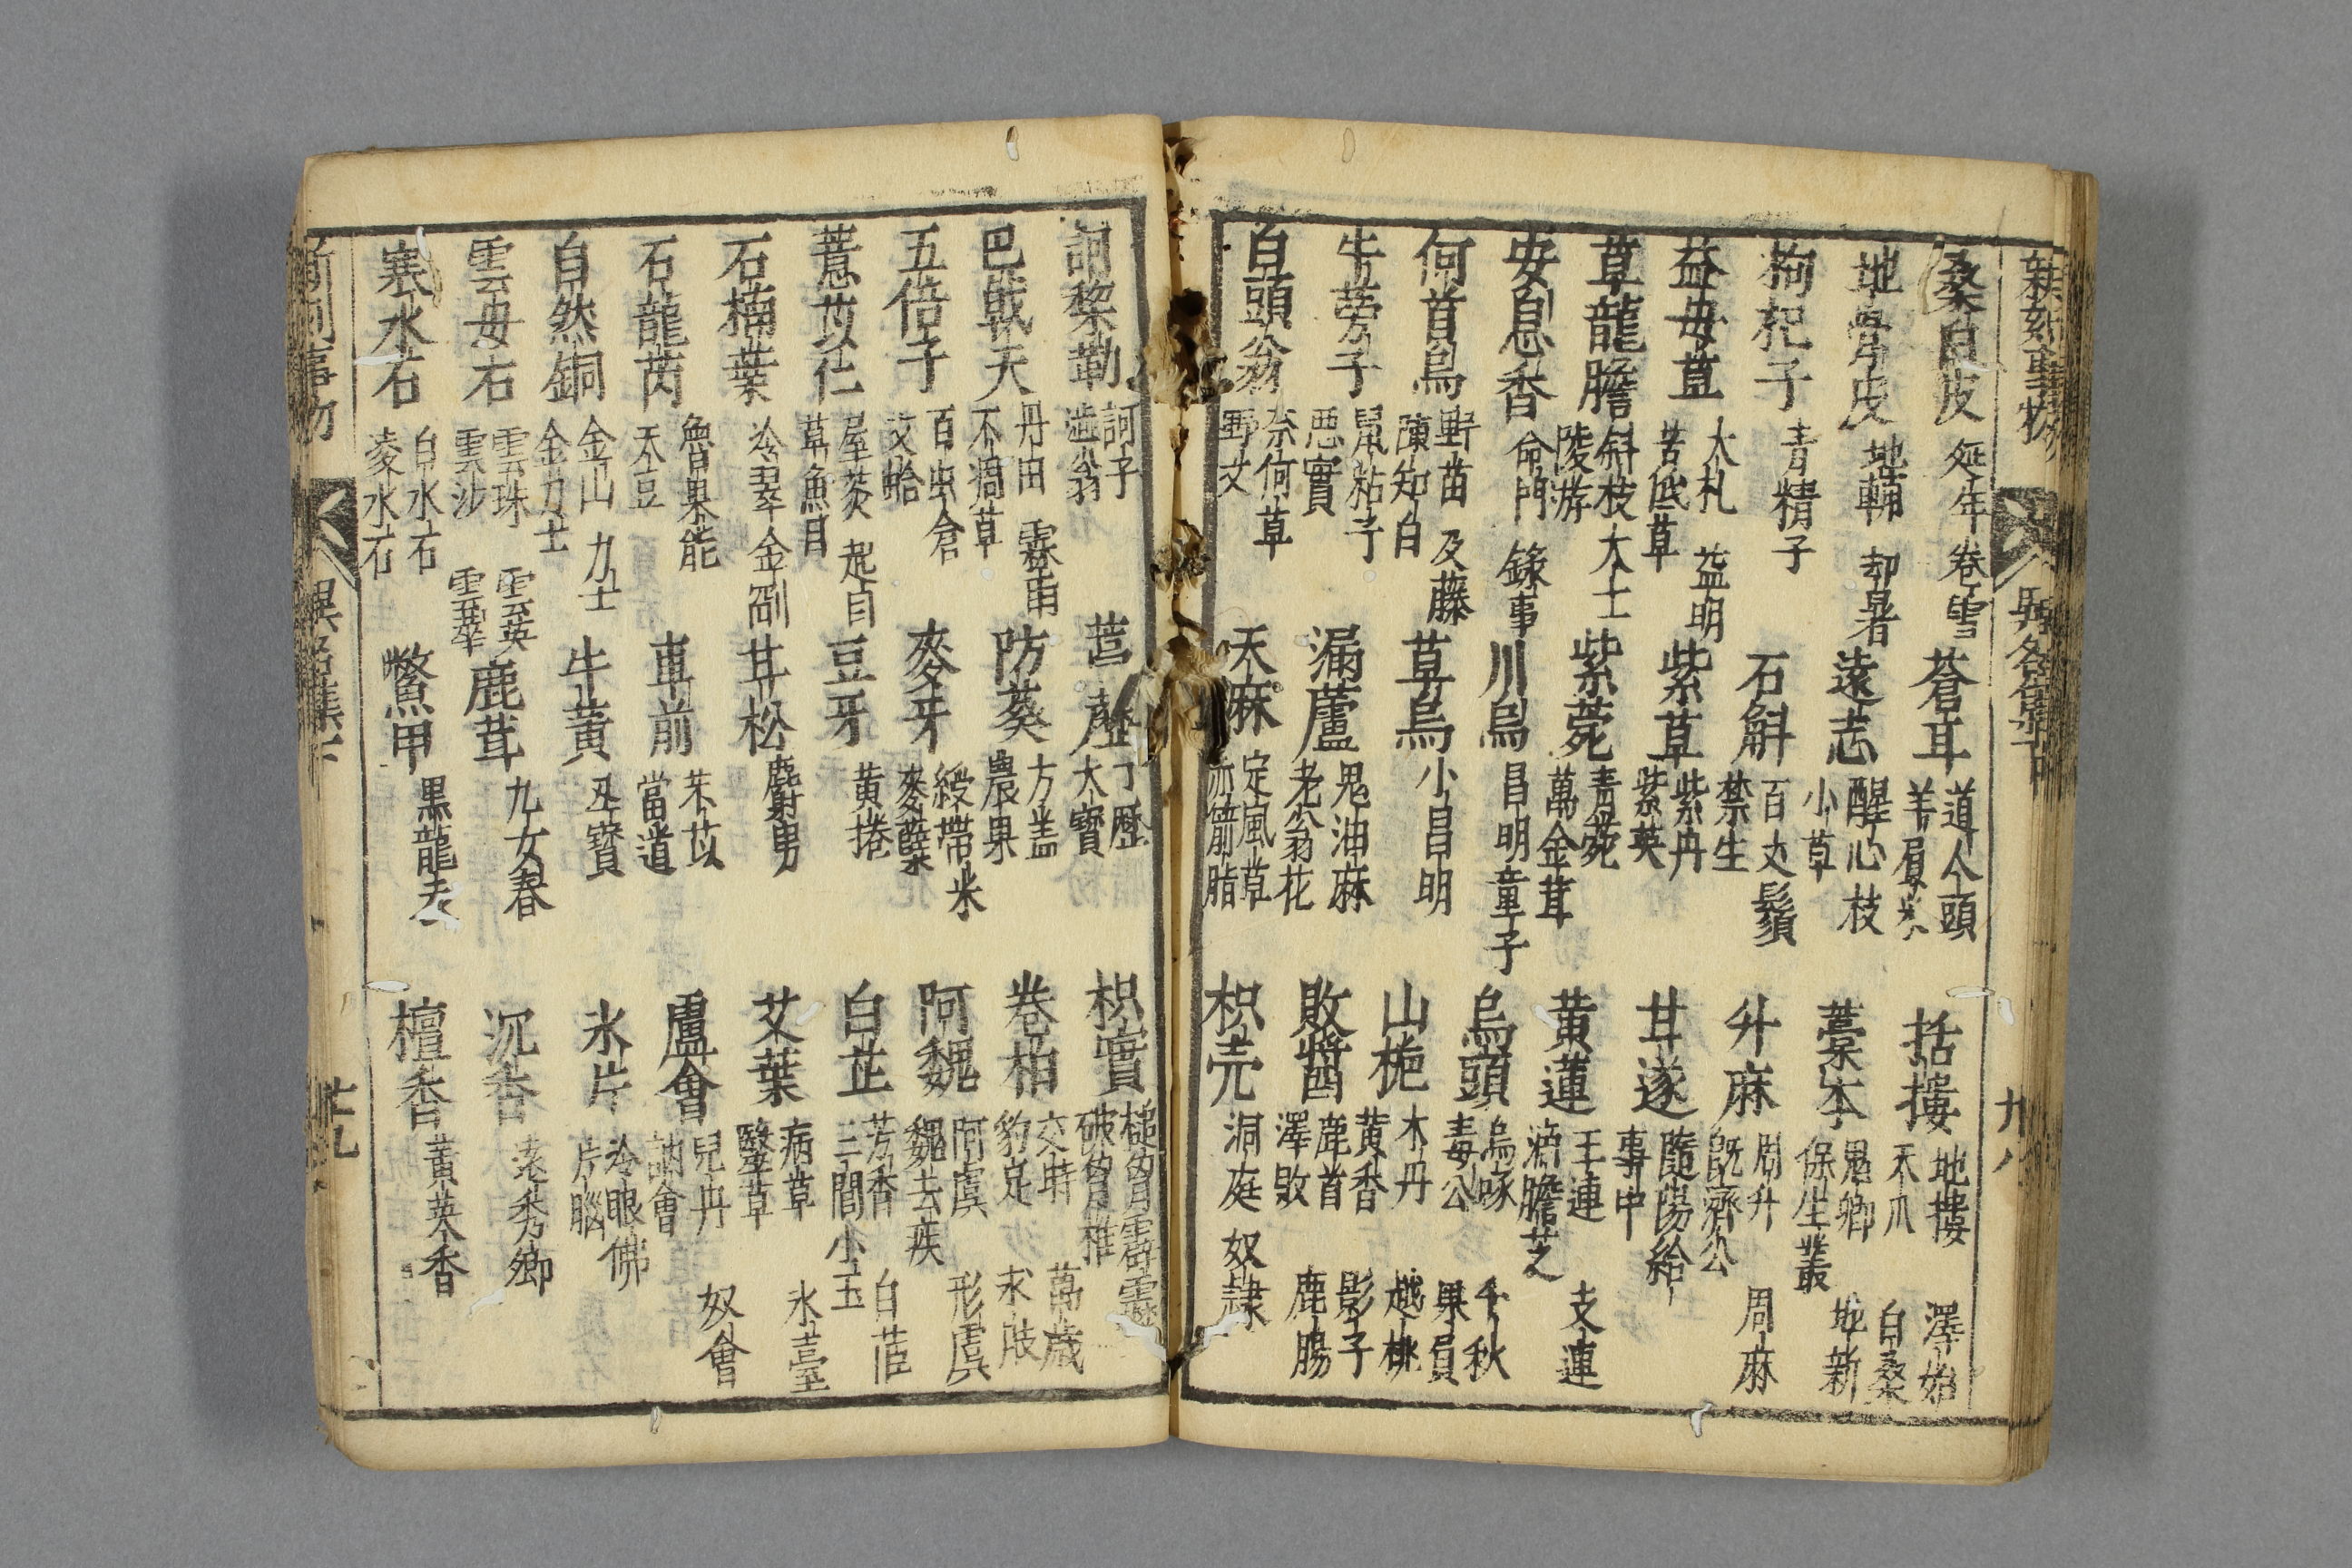 新刻事物 異名集下 廿八
桑白皮 延年卷雪 蒼耳 道人頭 羊屓來 括摟 地摟 天爪 澤始 白桑
地骨皮 地輔 却暑 遠志 醒心枝 小草 藁本 鬼卿 保生叢 地新
枸杞子 青精子 石斛 百丈鬚 禁生 升麻 周升 旣濟公 周麻
益母草 大札 益明 苦低草 紫草 紫丹 紫英 甘遂 隨陽給事中
草龍膽 斜枝大士 陵游 紫菀 青菀 萬金茸 黄蓮 王連 滴膽芝 支連
安息香 命門錄事 川烏 昌明童子 烏頭 烏啄 毒公 千秋 果員
何首烏 野苗 及藤 陳知白 草烏 小昌明 山梔 木丹 越桃
牛蒡子 鼠粘子 悪實 漏蘆 鬼油麻 老翁花 敗醬 黄香 鹿首 澤敗 影子 鹿腸
白頭翁 奈何草 野丈 天麻 定風草 赤箭脂 枳壳 洞庭奴隷
訶棃勒 訶子 澁翁 葶藶 丁歷 太寳 枳實 槌胷霹靂 破胷椎
巴戟天 丹田霖雨 不凋草 防葵 方盖 農果 卷柏 交時 豹足 萬歲 求股
五倍子 百虫倉 文蛤 麥牙 綬帶米 麥蘖 阿魏 阿虞 魏去疾 形虞
薏苡仁 屋菼 起貟 草魚目 豆牙 黄捲 白芷 芳香 三閭小玉 白茝
石楠葉 冷翠金剛 甘松 麝男 艾葉 病草 醫草 氷臺
石龍芮 魯果能 天豆 車前 芣苡 當道 盧會 兒冉 訥會 奴會
自然銅 金山力士 金力士 牛黄 丑寳 氷片 冷眼佛 片腦
雲母石 雲珠 雲沙 雲英 雲華 鹿茸 九女春 沉香 遠秀卿
寒水石 白水石 凌水石 鱉甲 黒龍衣 檀香 黄英香
事物 異名集下 廿九